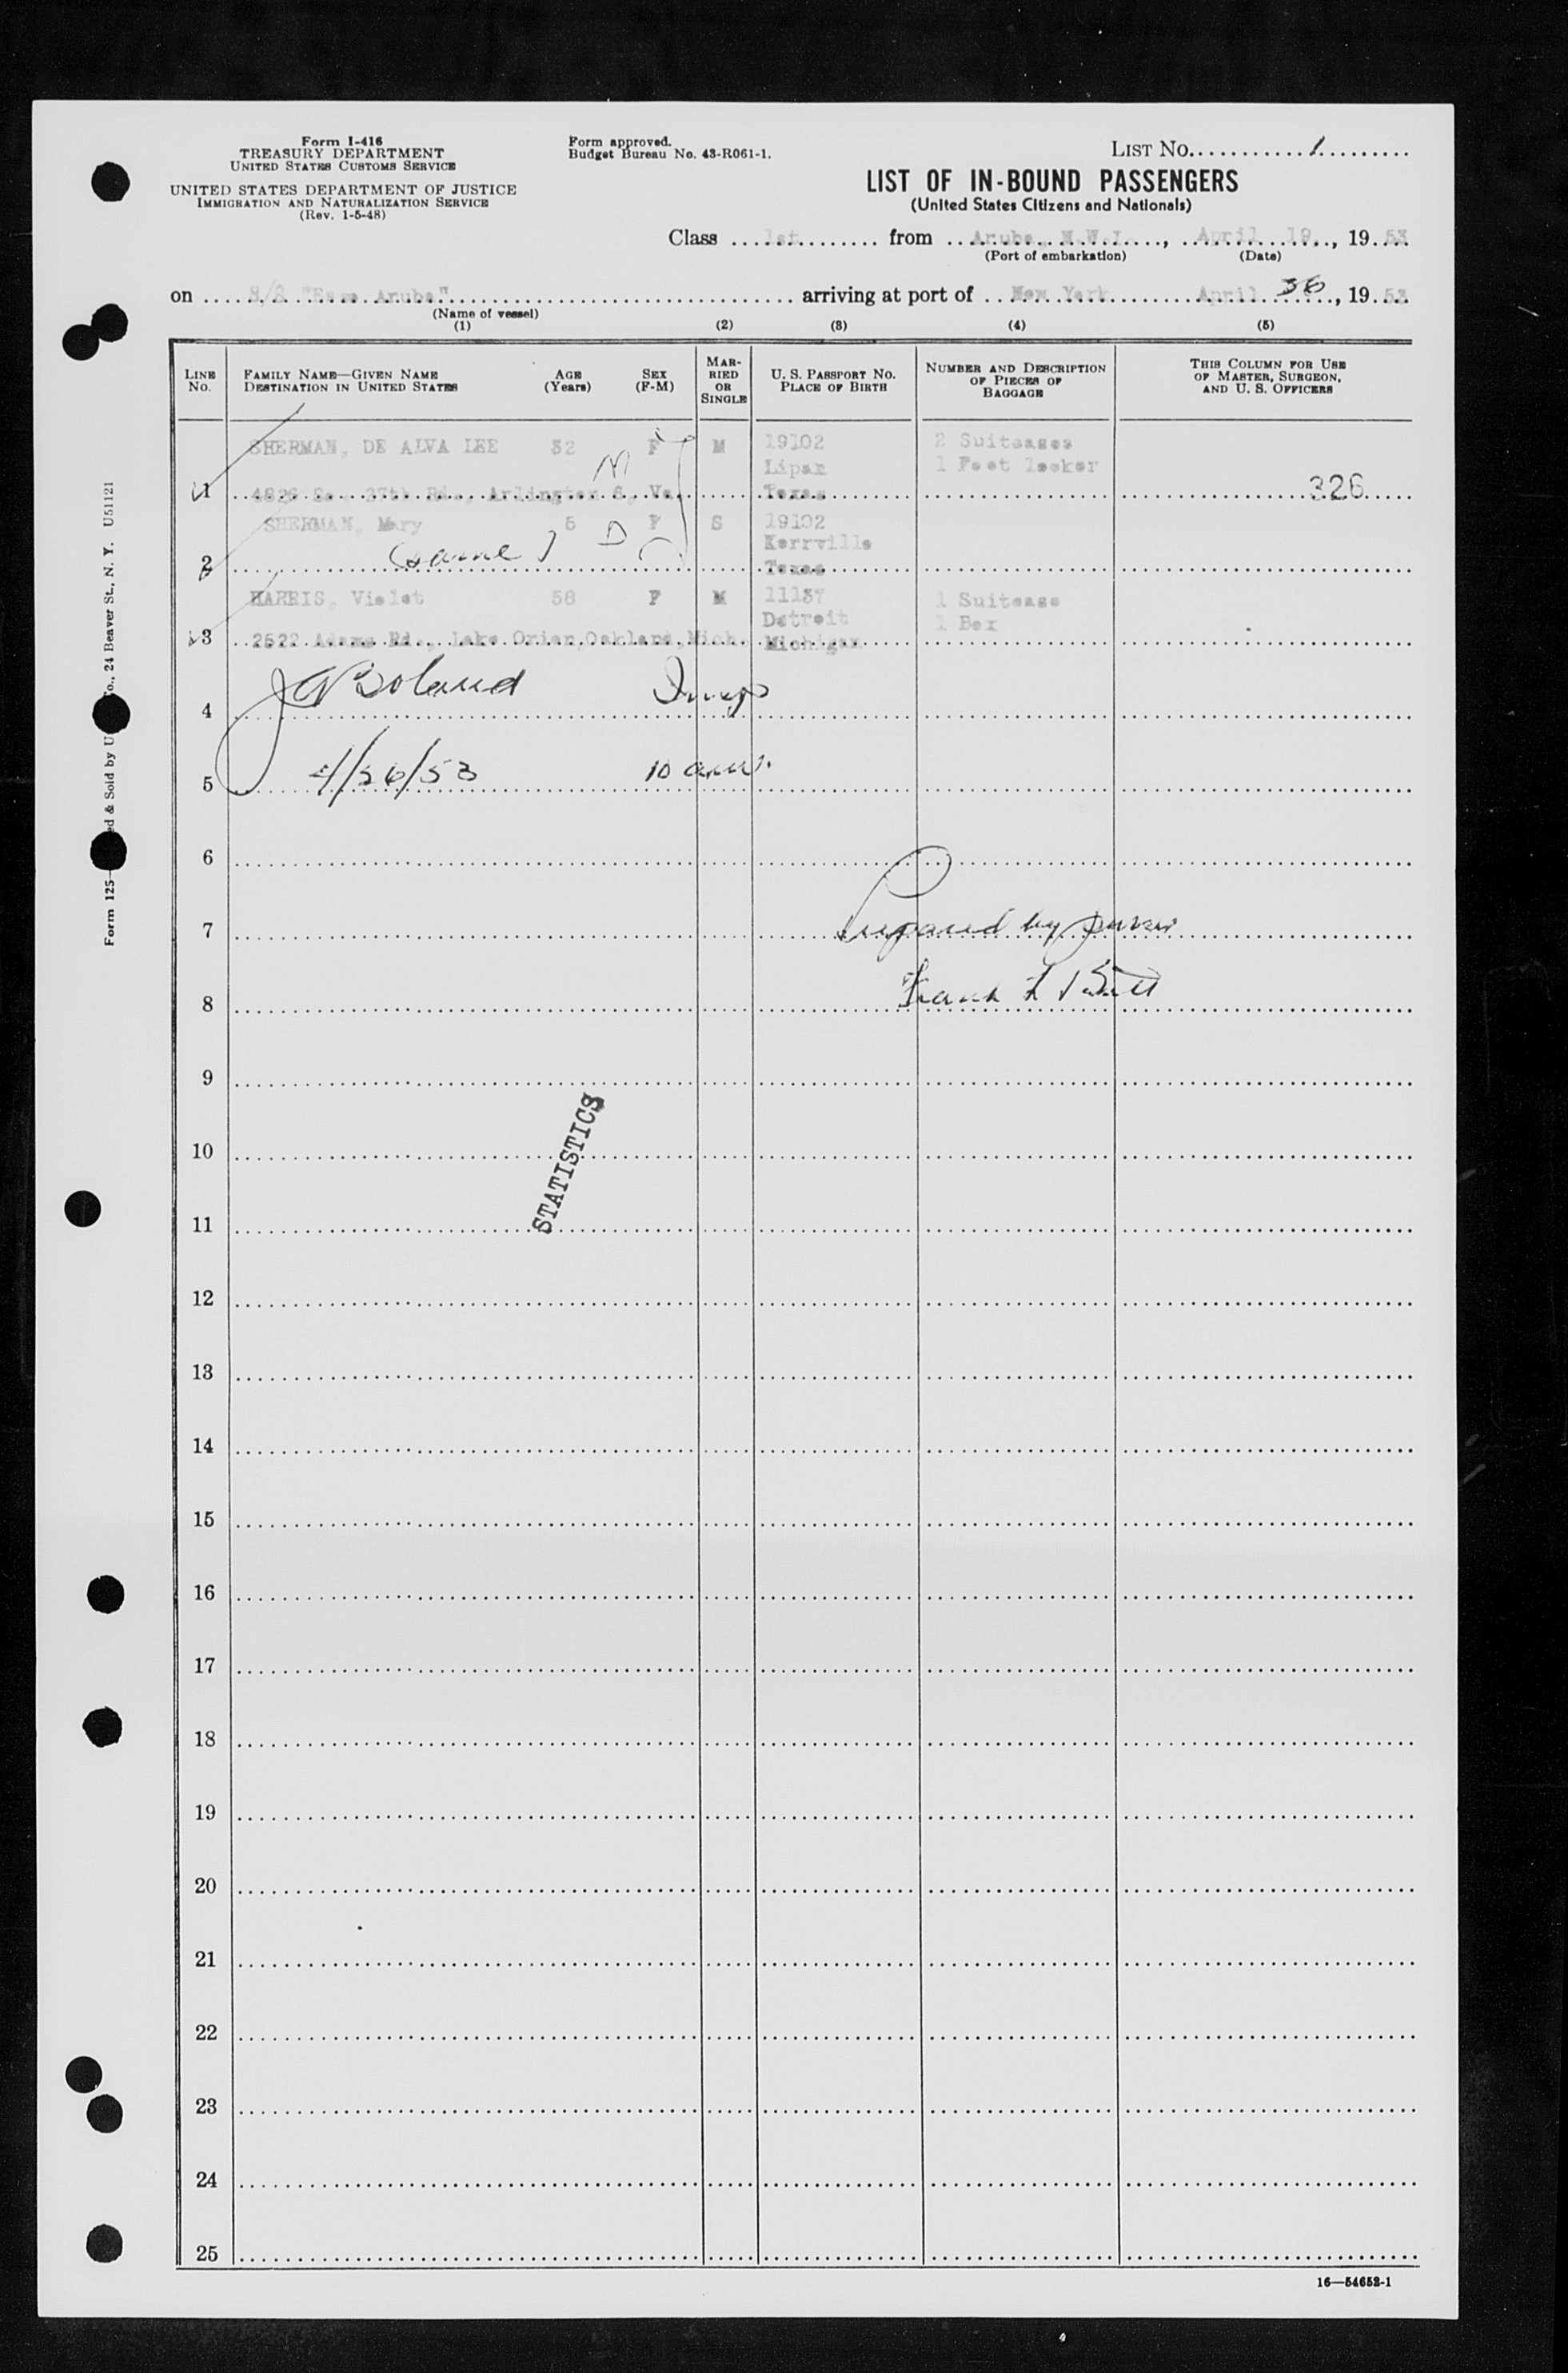 Form I-416
TREASURY DEPARTMENT
UNITED STATES CUSTOMS SERVICE
UNITED STATES DEPARTMENT OF JUSTICE
IMMIGRATION AND NATURALIZATION SERVICE
(Rev. 1-5-48)
Form approved.
Budget Bureau No. 43-R061-1.
LIST No. 1
LIST OF IN-BOUND PASSENGERS
(United States Citizens and Nationals)
Class 1st from Aruba, N.W.I., April 19, 1953
(Port of embarkation) (Date)
on S/S "Esso Aruba" arriving at port of New York April 26, 1953
(Name of vessel)
(1) (2) (3) (4) (5)
LINE No. FAMILY NAME—GIVEN NAME DESTINATION IN UNITED STATES AGE (Years) SEX (F-M) MARRIED OR SINGLE U. S. PASSPORT No. PLACE OF BIRTH NUMBER AND DESCRIPTION OF PIECES OF BAGGAGE THIS COLUMN FOR USE OF MASTER, SURGEON, AND U. S. OFFICERS
SHERMAN, DE ALVA LEE 32 F M 19102 2 Suitcases
M Lipan 1 Foot locker
1 4826 So. 27th Rd., Arlington 6, Va. Texas 326
SHERMAN, Mary 5 F S 19102
(same) D Kerrville
2 Texas
HARRIS, Violet 58 F M 11137 1 Suitcase
Detroit 1 Box
3 2522 Adams Rd., Lake Orion, Oakland, Mich. Michigan
Boland Insp
4
4/26/53 10 am.
5
6
Prepared by purser
7
Frank L
8
9
STATISTICS
10
11
12
13
14
15
16
17
18
19
20
21
22
23
24
25
16—54652-1
Form 125— ed & Sold by U o., 24 Beaver St., N. Y. U51121